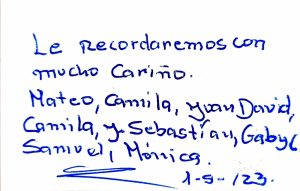 Le recordaremos con
mucho Cariño.
Mateo, Camila, Yvan David,
Camila, y Sebastían, Gaby,
Samuel, Mónica.
1-5-/23.